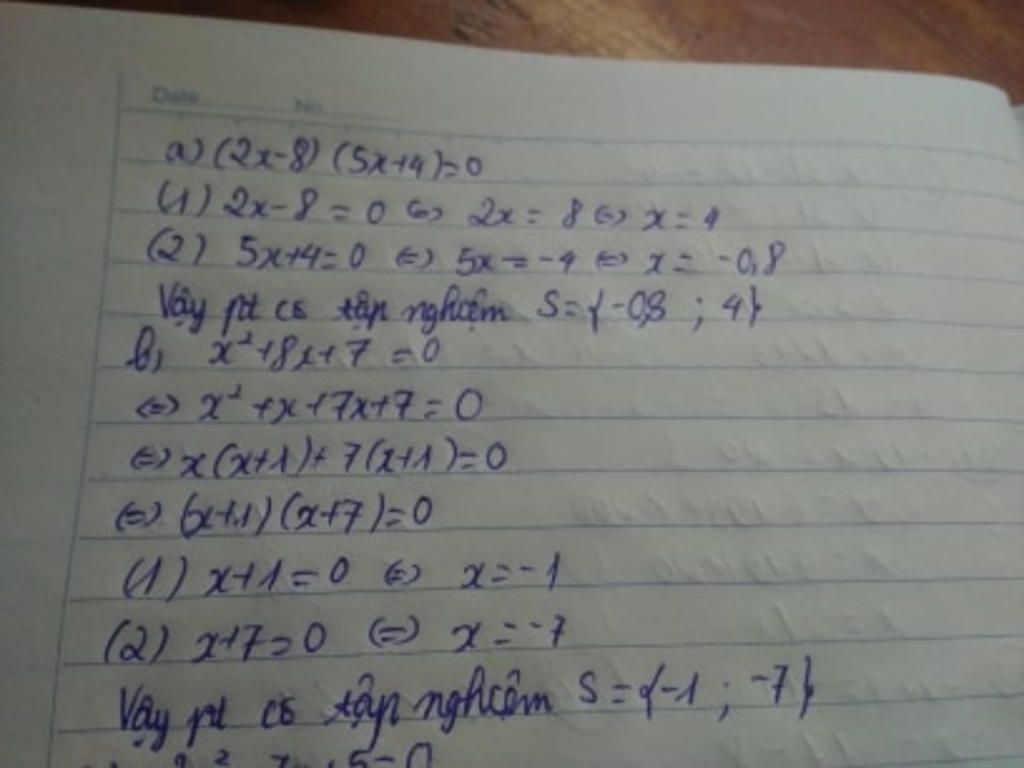 Date No
a) (2x-8) (5x+4)=0
(1) 2x-8 = 0 <=> 2x = 8 <=> x = 4
(2) 5x+4=0 <=> 5x = -4 <=> x = -0,8
Vậy pt có tập nghiệm S={-0,8 ; 4}
b) x²+8x+7 = 0
<=> x² +x+7x+7=0
<=> x(x+1)+7(x+1)=0
<=> (x+1)(x+7)=0
(1) x+1=0 <=> x=-1
(2) x+7=0 <=> x=-7
Vậy pt có tập nghiệm S={-1 ; -7}